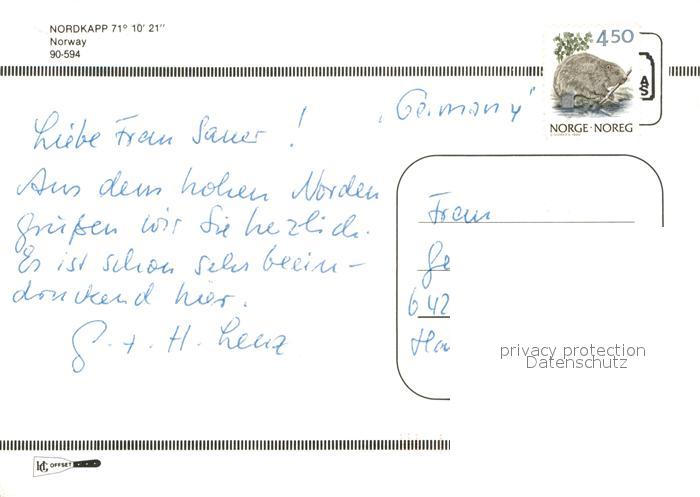 NORDKAPP 71° 10' 21''
Norway
90-594
450
NORGE·NOREG
"Germany"
Liebe Frau Sauer !
Aus dem hohen Norden
grüßen wir Sie herzlich.
Es ist schon sehr beein-
druckend hier.
G. + H. Lenz
Frau
Ge
642
Ha
privacy protection
Datenschutz
OFFSET